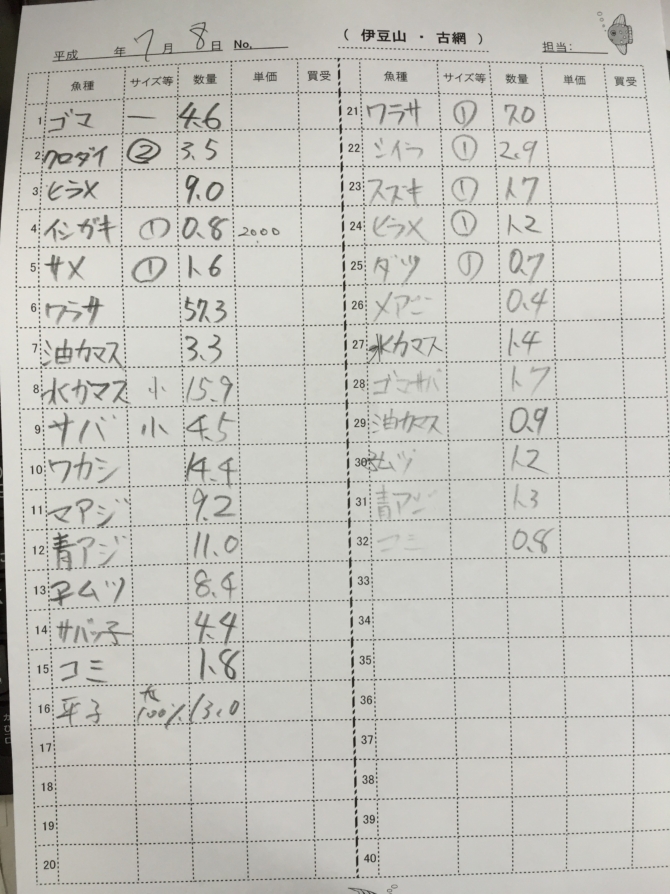 （ 伊豆山 ・ 古網 ）
平成 年 7 月 8 日 No. 担当:
魚種 サイズ等 数量 単価 買受
1 ゴマ 一 4.6
2 クロダイ ② 3.5
3 ヒラメ 9.0
4 イシガキ ① 0.8 2000
5 サメ ① 1.6
6 ワラサ 57.3
7 油カマス 3.3
8 水カマス 小 15.9
9 サバ 小 4.5
10 ワカシ 14.4
11 マアジ 9.2
12 青アジ 11.0
13 ムツ 8.4
14 サバッ子 4.4
15 コミ 1.8
16 平子 100% 13.0
17
18
19
20
魚種 サイズ等 数量 単価 買受
21 ワラサ ① 7.0
22 シイラ ① 2.9
23 スズキ ① 1.7
24 ヒラメ ① 1.2
25 ダツ ① 0.7
26 メアジ 0.4
27 水カマス 1.4
28 ゴマサバ 1.7
29 油カマス 0.9
30 ムツ 1.2
31 青アジ 1.3
32 コミ 0.8
33
34
35
36
37
38
39
40